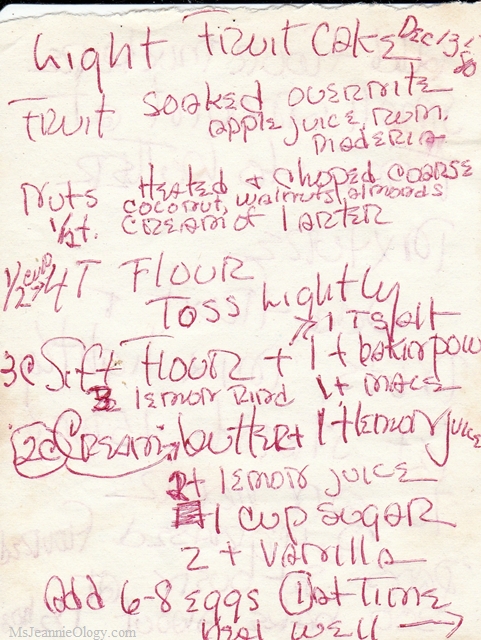 Light Fruit Cake Dec 13
80
Fruit soaked overnite
apple juice, rum,
maderia
Nuts Heated + chopped coarse
coconut, walnuts, almonds
1/2 t. cream of tarter
1/2 cup → 4 T Flour
Toss Lightly
→ 1 T Salt
3c Sift Flour + 1 t bakin pow
2 lemon rind 1 t mace
2c Cream butter + 1 t lemon juice
2 t lemon juice
1 cup sugar
2 t vanilla
add 6-8 eggs 1 at time
beat well →
MsJeannieOlogy.com